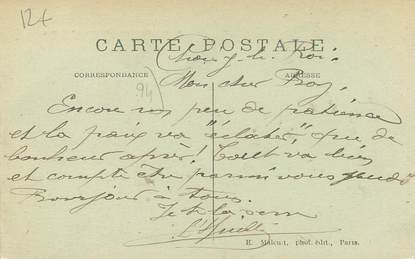 12€
CARTE POSTALE
Choisy-le-Roi.
CORRESPONDANCE
ADRESSE
94
Mon cher Boy,
Encore un peu de patience
et la paix va "éclater", que de
bonheur après! Tout va bien
et compte être parmi vous jeudi
Bonjour à tous.
Je te la serre
E. Malcuit, phot. édit., Paris.